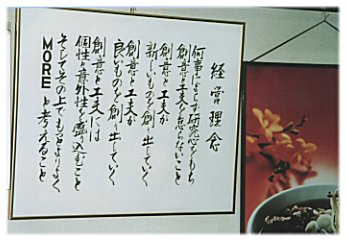 経営理念
何事によらず研究心をもち
創意と工夫を怠らないこと
創意と工夫が
新しいものを創り出していく
創意と工夫が
良いものを創り出していく
創意と工夫には
個性と意外性を盛込むこと
そしてその上でもっとよりよく
MOREと考えること